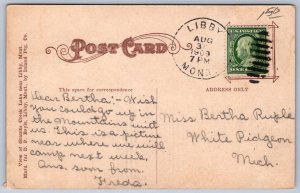 POST CARD
LIBBY
AUG
3
1909
7 PM
MONT.
150
View on Granite Creek Lake near Libby, Mont.
by Inland Ptg. Co.
This space for correspondence
ADDRESS ONLY
Dear Bertha:- Wish
you could go up in
the mountains with
us. This is a picture
near where we will
camp next week.
Ans. soon from
Freda.
Miss Bertha Ruple
White Pidgeon
Mich.